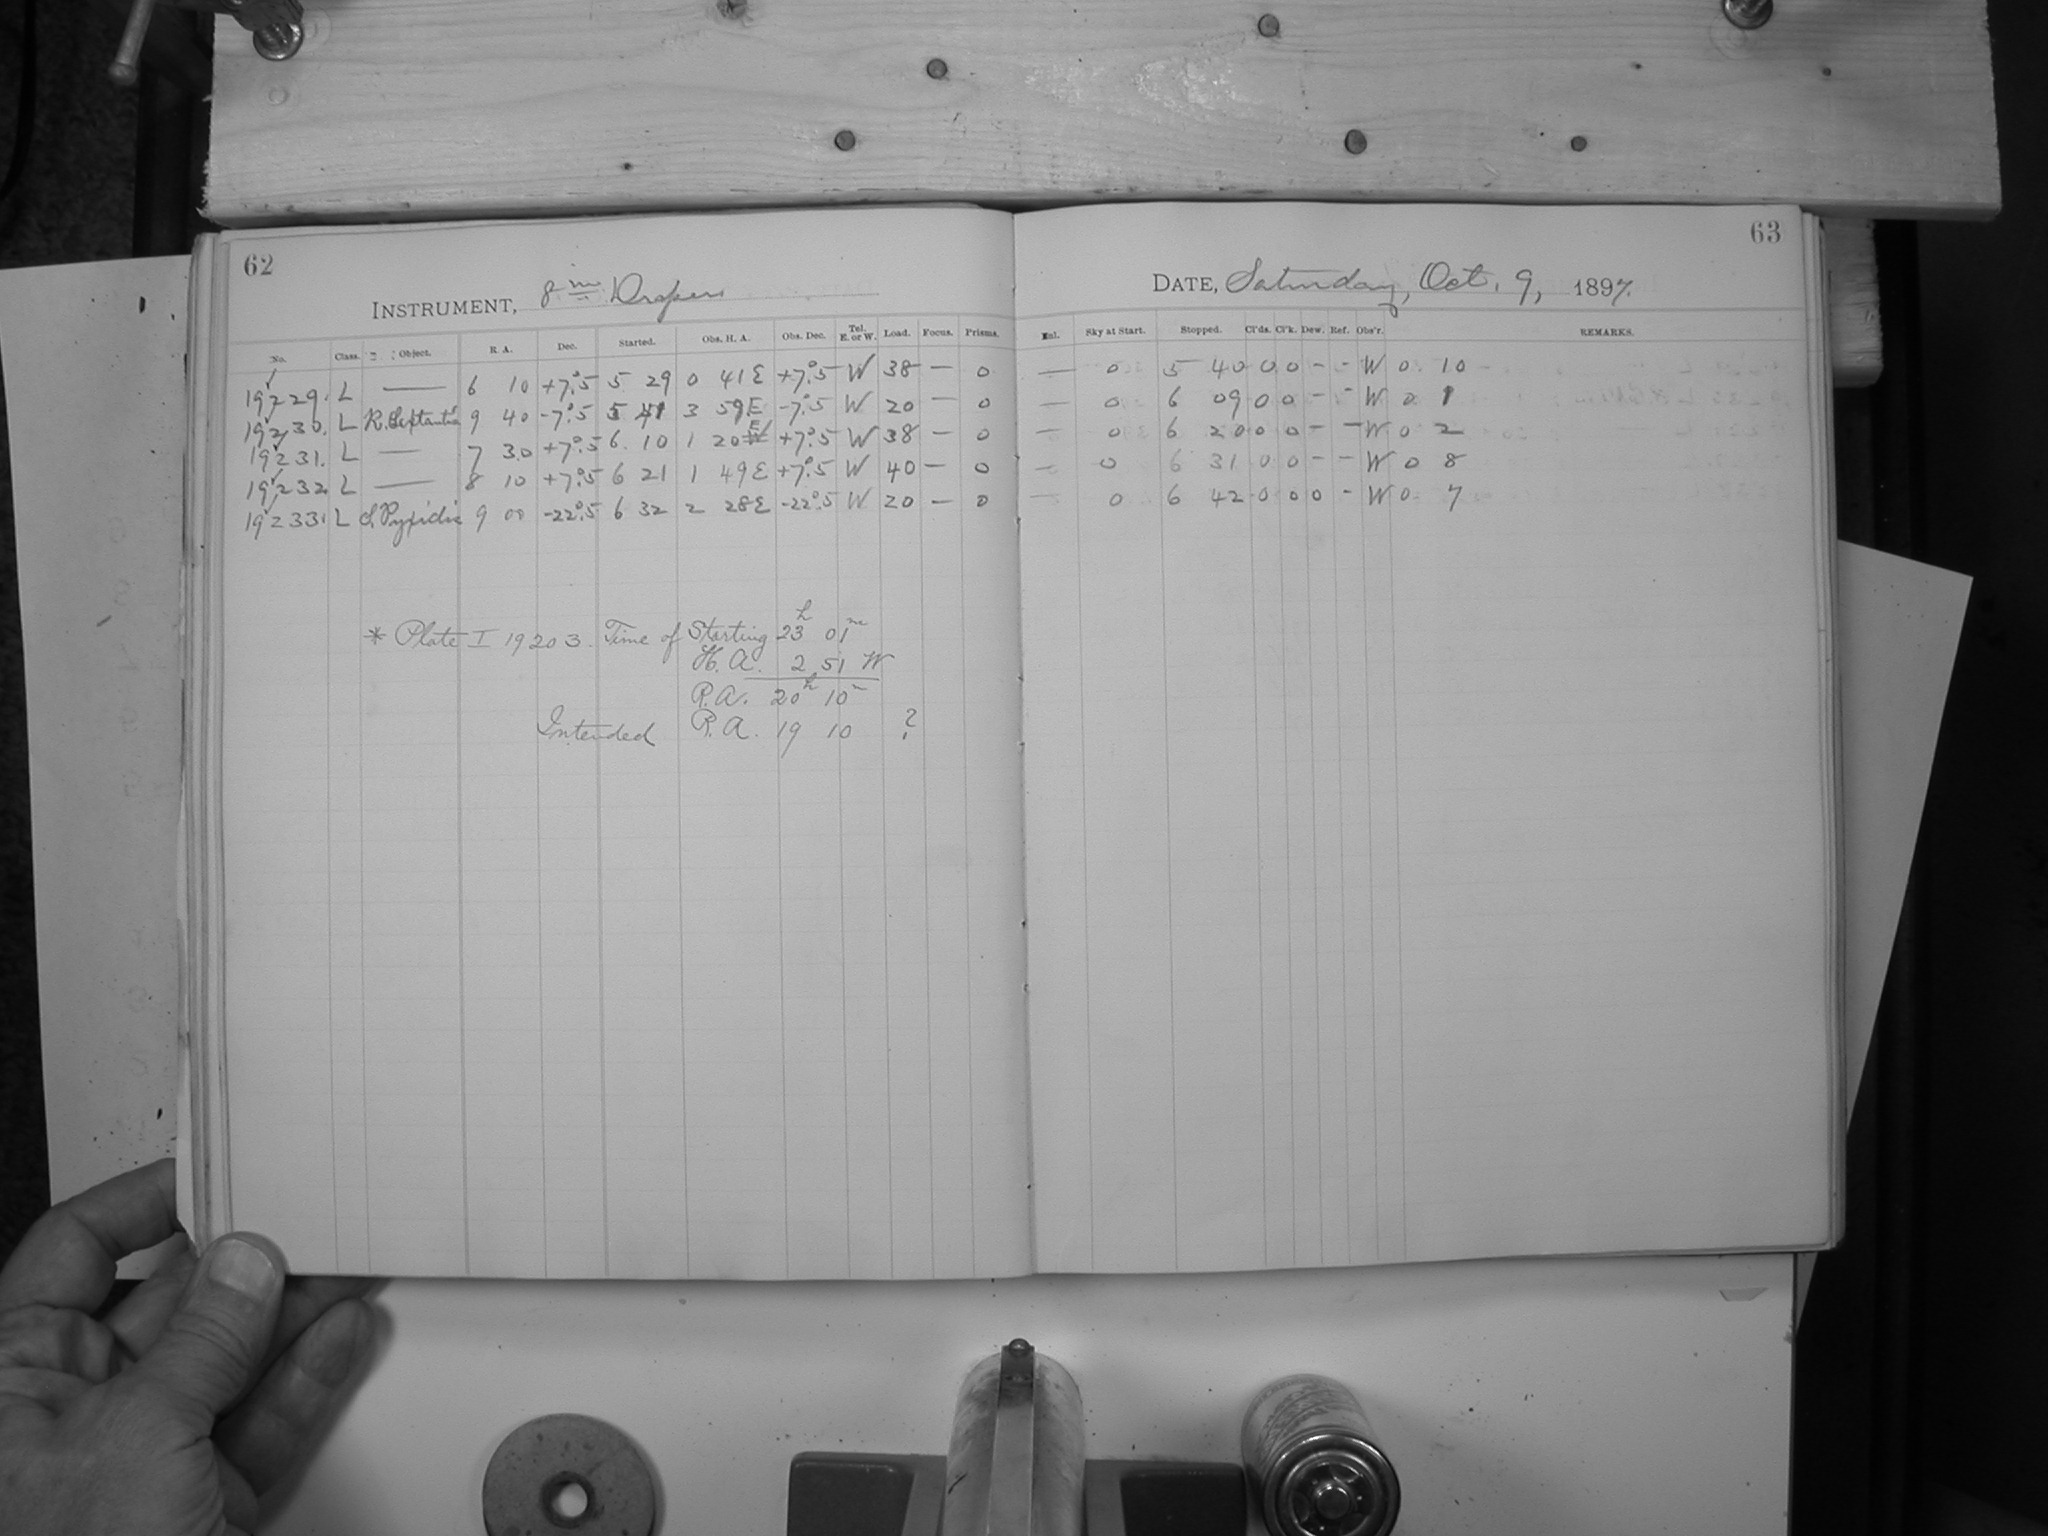 62
INSTRUMENT, 8 in Draper
No. Class. Object. R. A. Dec. Started. Obs. H. A. Obs. Dec. Tel. E. or W. Load. Focus. Prisms.
19229. L — 6 10 +7°.5 5 29 0 41 E +7°.5 W 38 — 0
19230. L R. Sextantis 9 40 -7°.5 5 41 3 59 E -7°.5 W 20 — 0
19231. L — 7 30 +7°.5 6 10 1 20 E +7°.5 W 38 — 0
19232 L — 8 10 +7°.5 6 21 1 49 E +7°.5 W 40 — 0
19233. L S. Pyxidis 9 00 -22°.5 6 32 2 28 E -22°.5 W 20 — 0
* Plate I 19203. Time of Starting 23h 01m
H. A. 2 51 W
R. A. 20h 10m
Intended R. A. 19 10 ?
63
DATE, Saturday, Oct. 9, 1897.
Enl. Sky at Start. Stopped. Cl'ds. Cl'k. Dew. Ref. Obs'r. REMARKS.
— 0 5 40 0 0 - - W 0 10
— 0 6 09 0 0 - - W 0 1
— 0 6 20 0 0 - - W 0 2
— 0 6 31 0 0 - - W 0 8
— 0 6 42 0 0 0 - W 0 7